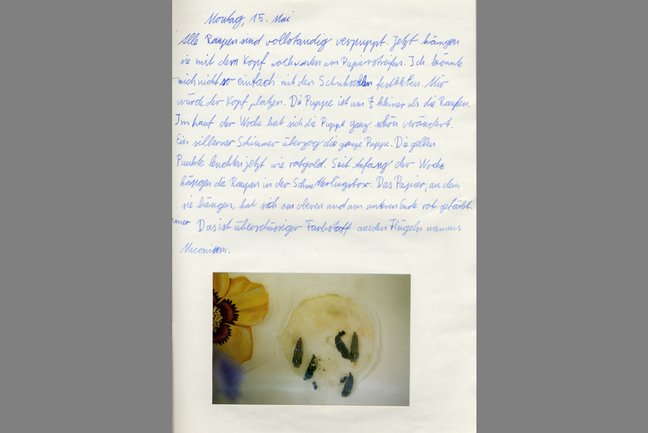 Montag, 15. Mai
Alle Raupen sind vollständig verpuppt. Jetzt hängen
sie mit dem Kopf nach unten am Papierstreifen. Ich könnte
mich nicht so einfach mit den Schuhsohlen festkleben. Mir
würde der Kopf platzen. Die Puppe ist um ⅓ kleiner als die Raupen.
Im Lauf der Woche hat sich die Puppe ganz schön verändert.
Ein silberner Schimmer überzog die ganze Puppe. Die gelben
Punkte leuchten jetzt wie rotgold. Seit Anfang der Woche
hängen die Raupen in der Schmetterlingsbox. Das Papier, an dem
sie hängen, hat sich am oberen und am unteren Ende rot gefärbt.
Das ist überschüssiger Farbstoff aus den Flügeln namens
Meconium.